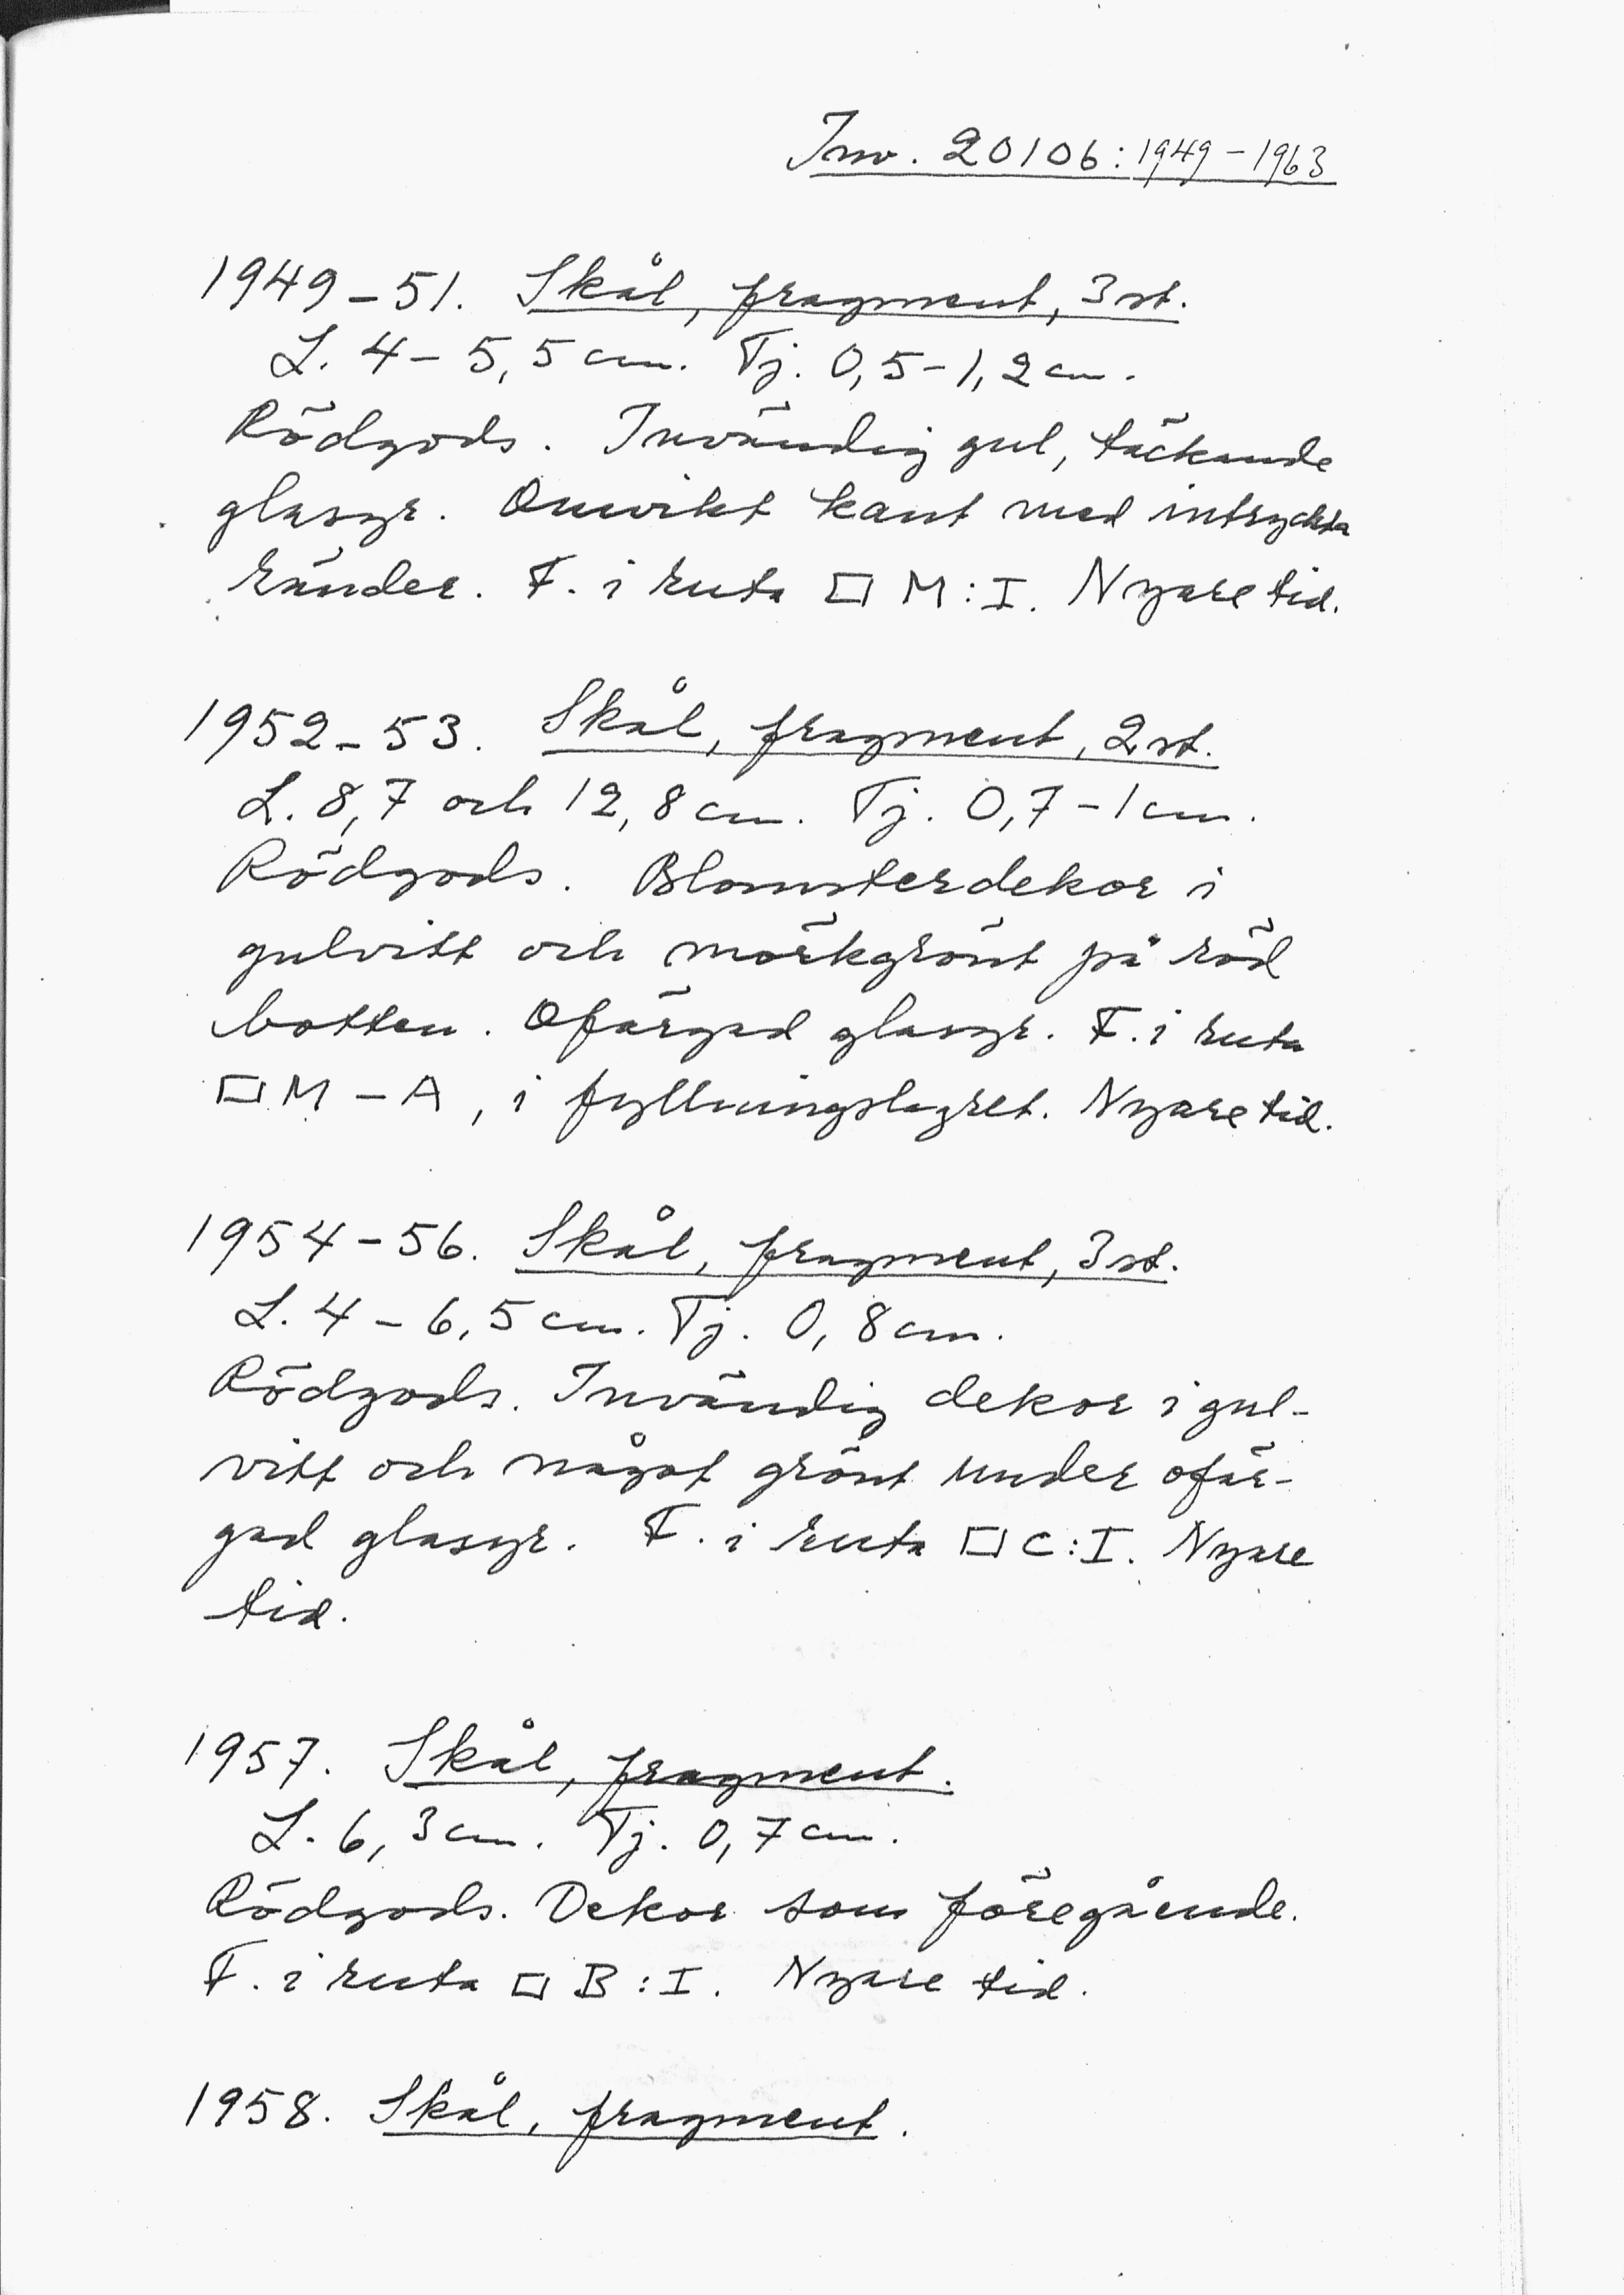 Inv. 20106:1949-1963
1949-51. Skål, fragment, 3 st.
L. 4-5,5 cm. Tj. 0,5-1,2 cm.
Rödgods. Invändig gul, täckande
glasyr. Omvikt kant med intryckta
ränder. F. i ruta □ M:I. Nyare tid.
1952-53. Skål, fragment, 2 st.
L. 8,7 och 12,8 cm. Tj. 0,7-1 cm.
Rödgods. Blomsterdekor i
gulvitt och mörkgrönt på röd
botten. Ofärgad glasyr. F. i ruta
□ M-A, i fyllningslagret. Nyare tid.
1954-56. Skål, fragment, 3 st.
L. 4-6,5 cm. Tj. 0,8 cm.
Rödgods. Invändig dekor i gul-
vitt och något grönt under ofär-
gad glasyr. F. i ruta □ C:I. Nyare
tid.
1957. Skål, fragment.
L. 6,3 cm. Tj. 0,7 cm.
Rödgods. Dekor som föregående.
F. i ruta □ B:I. Nyare tid.
1958. Skål, fragment.